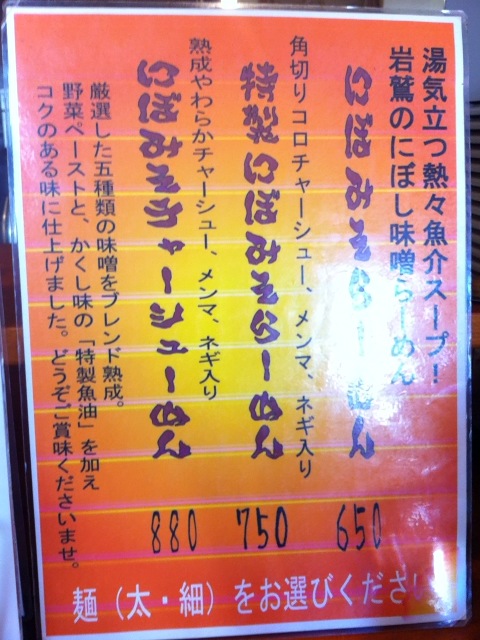 湯気立つ熱々魚介スープ！
岩鷲のにぼし味噌らーめん
にぼみそらーめん
650
角切りコロチャーシュー、メンマ、ネギ入り
特製にぼみそらーめん
750
熟成やわらかチャーシュー、メンマ、ネギ入り
にぼみそチャーシューめん
880
厳選した五種類の味噌をブレンド熟成。
野菜ペーストと、かくし味の「特製魚油」を加え
コクのある味に仕上げました。どうぞご賞味くださいませ。
麺（太・細）をお選びください